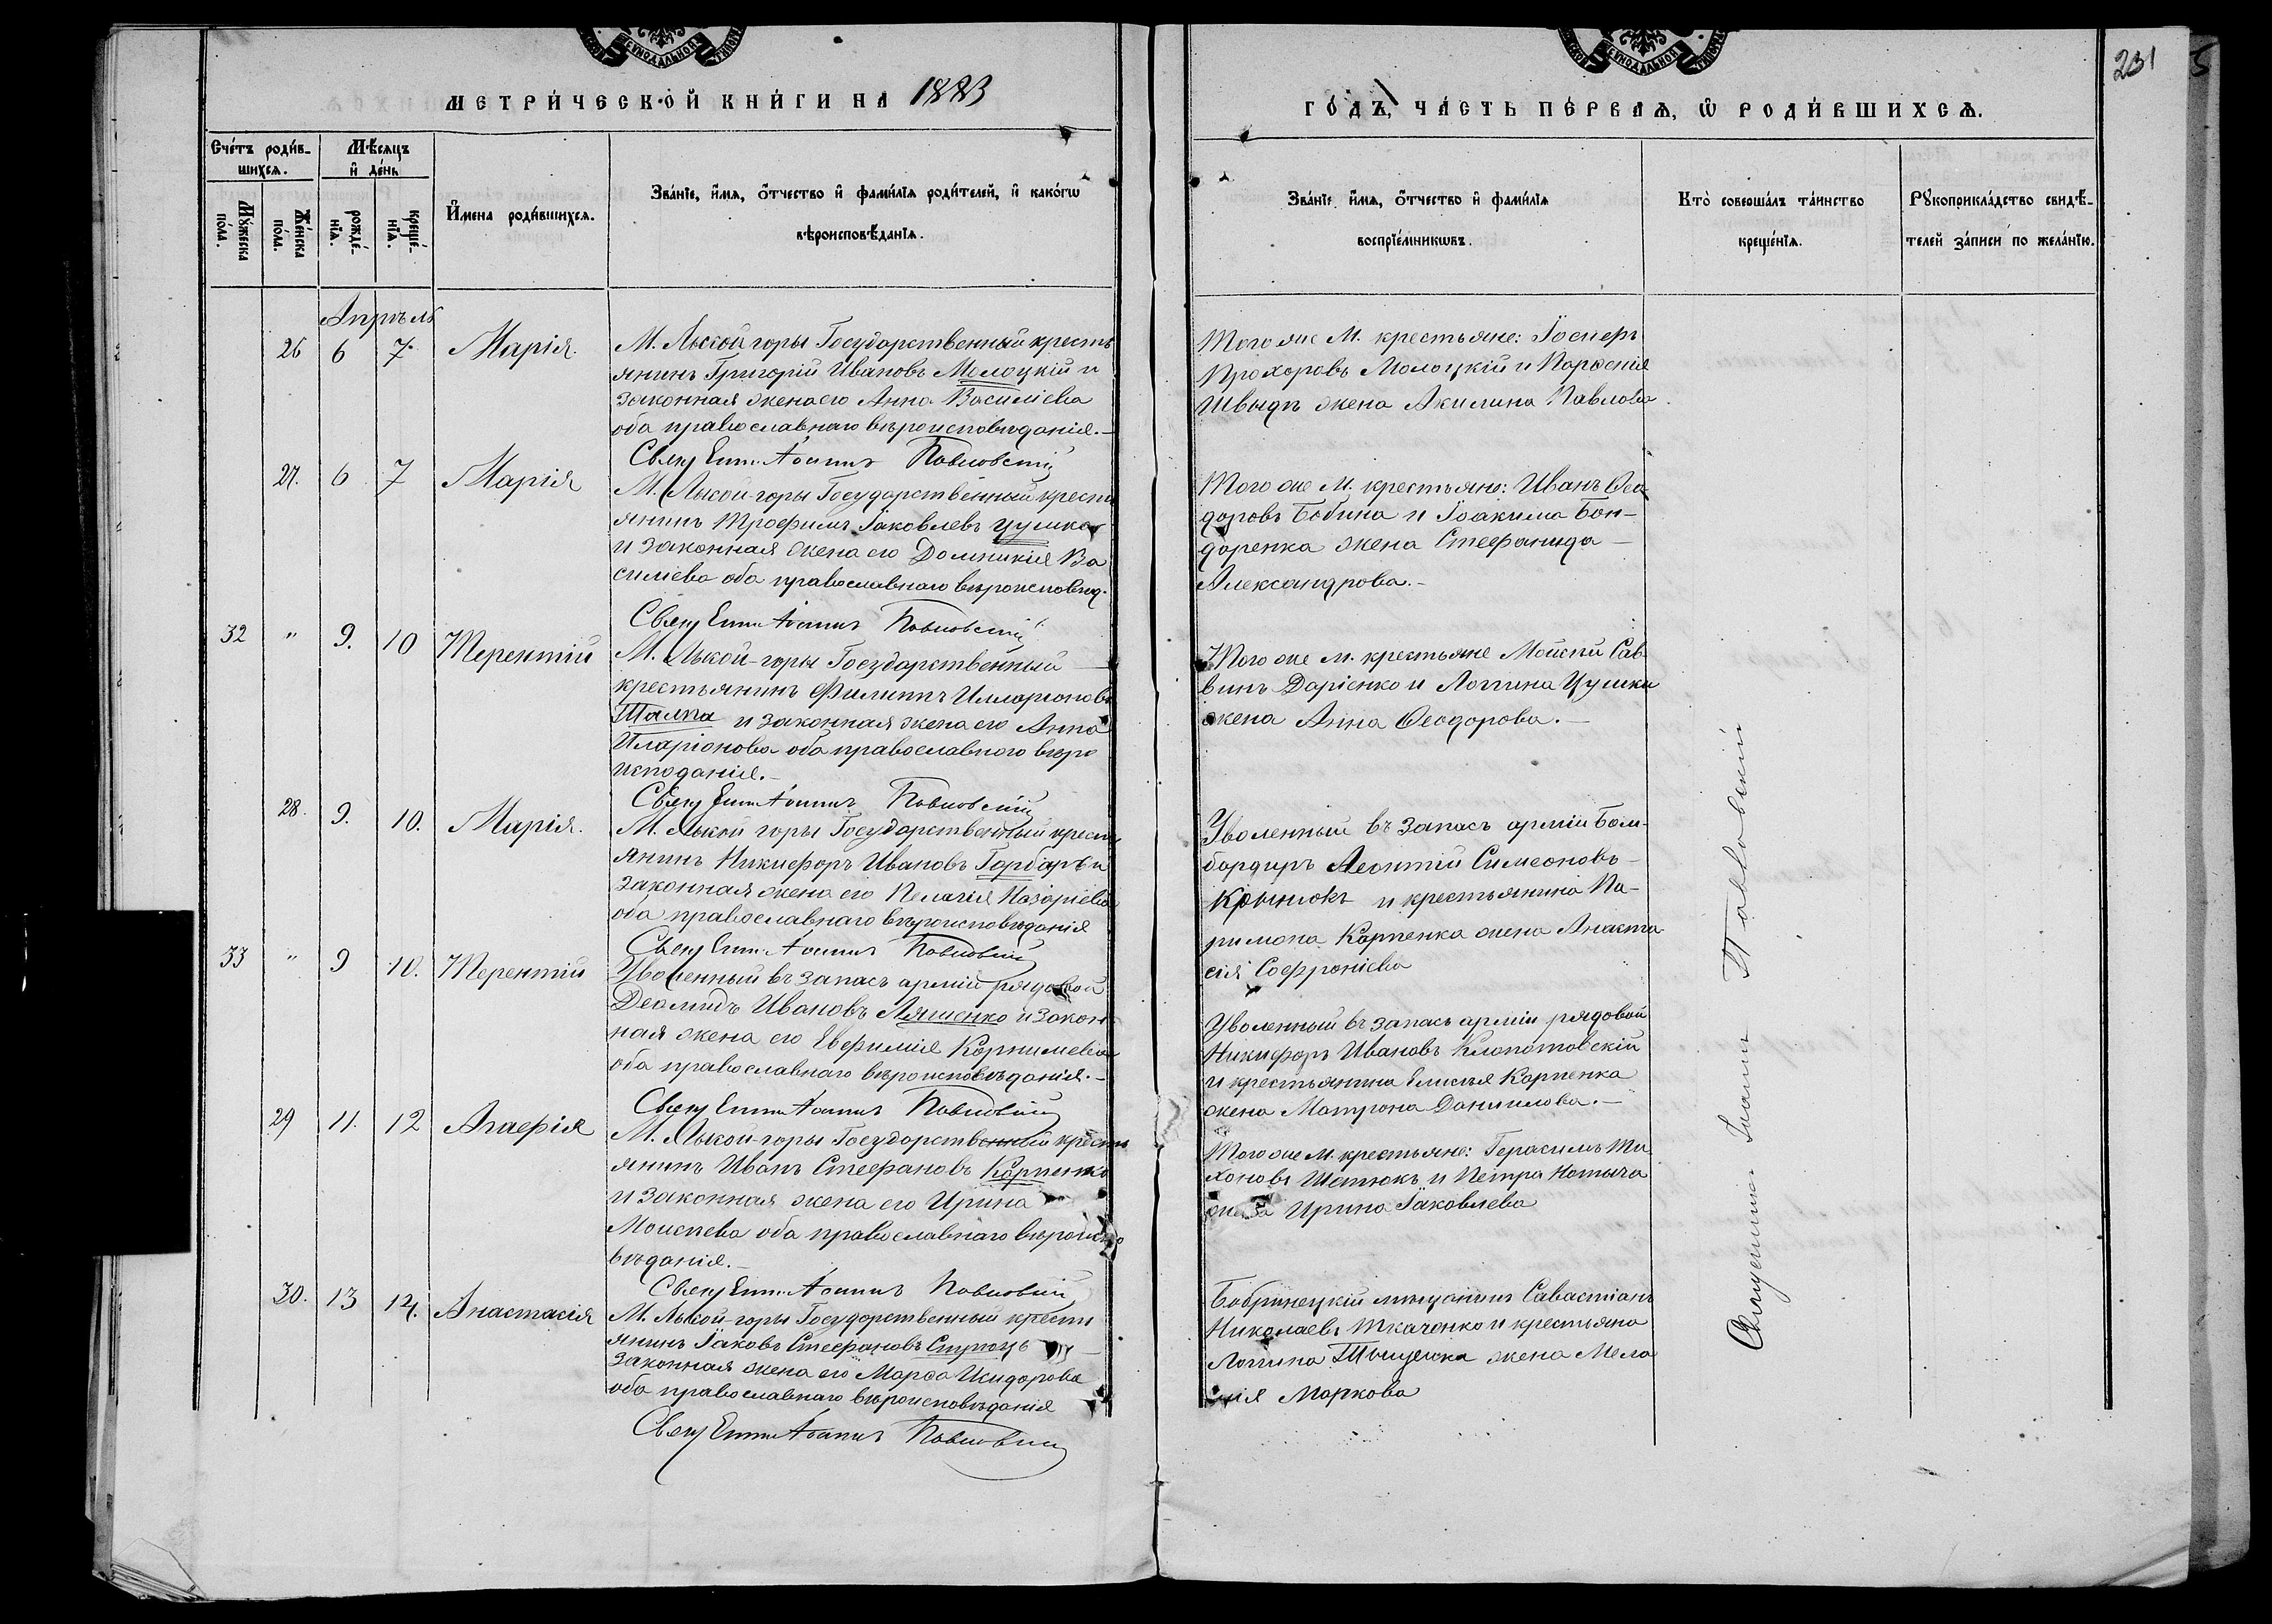 МЕТРИ́ЧЕСКОЙ КНИ́ГИ НА 1883
ГО́ДЪ, ЧА́СТЬ ПЕ́РВАѦ, Ѿ РОДИ́ВШИХСѦ.
231
Сче́тъ роди́в-
шихсѧ.
Мѣ́сяцъ
и де́нь
Му́жеска
по́ла.
Же́нска
по́ла.
рожде́-
нїѧ.
креще́-
нїѧ.
И́мена роди́вшихсѧ.
Зва́нїе, и́мѧ, о́тчество и фами́лїѧ роди́телей, и како́гѡ
вѣроисповѣ́данїѧ.
Зва́нїе и́мѧ, о́тчество и фами́лїѧ
воспрїе́мникѡвъ.
Кто̀ соверша́лъ та́инство
креще́нїѧ.
Рꙋкоприкла́дство свидѣ́-
телей за́писи по жела́нїю.
Апрѣль
26 6 7. Марія.
М. Лысой горы Государственный кресть
янинъ Григорій Ивановъ Молоцкій и
законная жена его Анна Василіева
оба православнаго вѣроисповѣданія.–
Свящ Іоаннъ Павловскій
Того же М. крестьяне: Іосифъ
Прохоровъ Молоцкій и Парфенія
Швыдъ жена Акилина Павлова.
27. 6 7 Марія
М. Лысой-горы Государственный кресть
янинъ Трофимъ Іаковлевъ Цушка
и законная жена его Домникія Ва
силіева оба православнаго вѣроисповѣд.
Свящ Іоаннъ Павловскій
Того же М. крестьяне: Иванъ Ѳео
доровъ Бобина и Іоакима Бон-
даренка жена Стефанида –
Александрова.–
32 " 9. 10 Терентій
М. Лысой-горы Государственный –
крестьянинъ Филиппъ Илларіоновъ
Талпа и законная жена его Анна
Иларіонова оба православнаго вѣро
исподанія.–
Свящ Іоаннъ Павловскій
Того же м. крестьяне Моисей Сав-
винъ Даріенко и Логгина Цушки
жена Анна Ѳеодорова.–
28. 9. 10. Марія.
М. Лысой горы Государственный кресть
янинъ Никифоръ Ивановъ Горбаръ и
законная жена его Пелагія Назаріева
оба православнаго вѣроисповѣданія
Свящ Іоаннъ Павловскій
Уволенный въ запасъ арміи Бом-
бардиръ Леонтій Симеоновъ –
Крынюкъ и крестьянина Па-
римона Карпенка жена Анаста
сія Софроніева
33 " 9 10. Терентій
Уволенный въ запасъ арміи рядовой
Деомидъ Ивановъ Ляшенко и закон
ная жена его Евфимія Корнилиева
оба православнаго вѣроисповѣданія.–
Свящ Іоаннъ Павловскій
Уволенный въ запасъ арміи рядовой
Никифоръ Ивановъ Клопотовскій
и крестьянина Елисѣя Карпенка
жена Матрона Даниилова.–
29 11. 12 Агафія
М. Лысой-горы Государственный кресть
янинъ Иванъ Стефановъ Карпенко
и законная жена его Ирина
Моисеева оба православнаго вѣроиспо
вѣданія.–
Свящ Іоаннъ Павловскій
Того же М. крестьяне: Герасимъ Ти
хоновъ Шетюкъ и Петра Нотыча
жена Ирина Іаковлева
30. 13 14. Анастасія
М. Лысой-горы Государственный кресть
янинъ Іаковъ Стефановъ Ступецъ
законная жена его Марфа Исидорова
оба православнаго вѣроисповѣданія
Свящ Іоаннъ Павловскій
Бобринецкій мѣщанинъ Савастіанъ
Николаевъ Ткаченко и крестьяна
Логгина Тыщенка жена Мела
нія Маркова
Священникъ Іоаннъ Павловскій